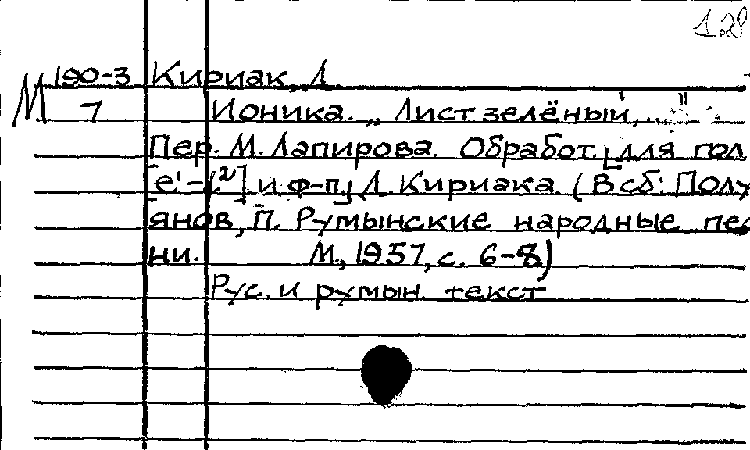 1.29
190-3 Кириак, Д.
М 7 Ионика. „Лист зелёный, ..."
Пер. М. Лапирова. Обработ. [для гол.
[e¹-f²] и ф-п.] Д. Кириака. (В сб.: Полу-
янов, П. Румынские народные пес-
ни. М., 1957, с. 6-8)
Рус. и румын. текст